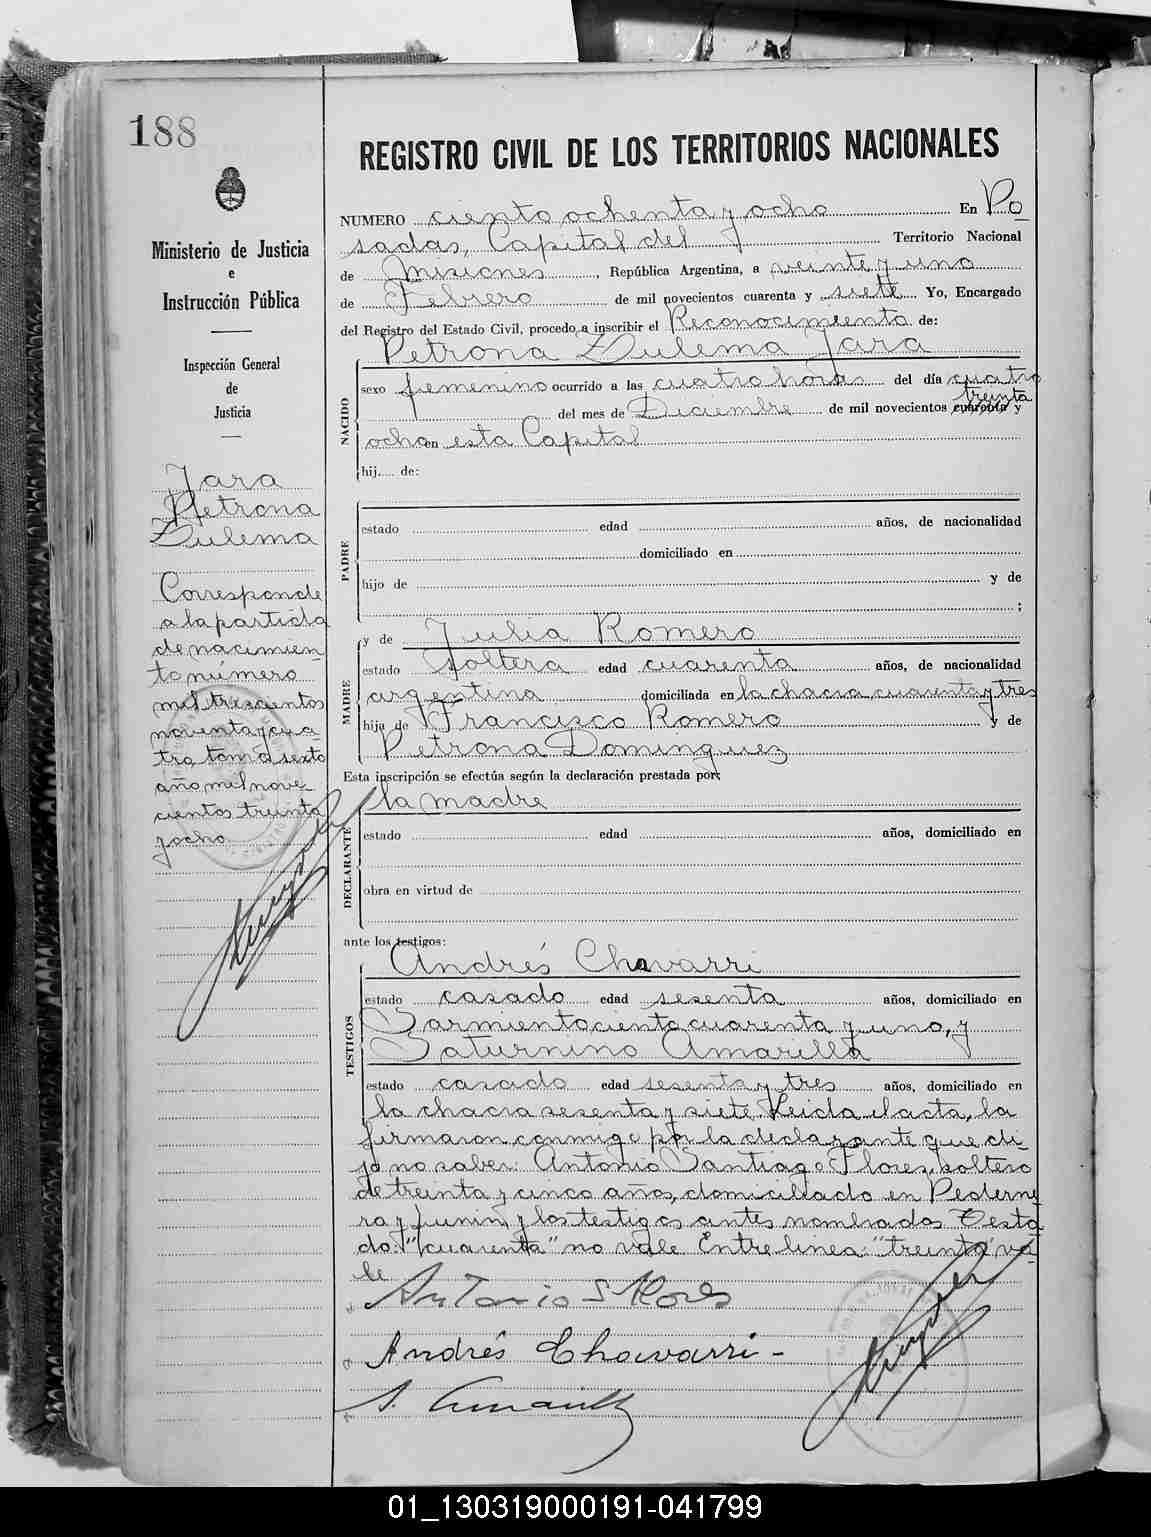 188
Ministerio de Justicia
e
Instrucción Pública
Inspección General
de
Justicia
Jara
Petrona
Zulema
Corresponde
a la partida
de nacimien
to número
mil trescientos
noventa y cua
tro tomo sexto
año mil nove
cientos treinta
y ocho
REGISTRO CIVIL DE LOS TERRITORIOS NACIONALES
NUMERO ciento ochenta y ocho En Po
sadas, Capital del Territorio Nacional
de Misiones, República Argentina, a veinte y uno
de Febrero de mil novecientos cuarenta y siete Yo, Encargado
del Registro del Estado Civil, procedo a inscribir el Reconocimiento de:
Petrona Zulema Jara
NACIDO
sexo femenino ocurrido a las cuatro horas del día cuatro
treinta
del mes de Diciembre de mil novecientos cuarenta y
ocho en esta Capital
hij.... de:
PADRE
estado edad años, de nacionalidad
domiciliado en
hijo de y de
;
MADRE
y de Julia Romero
estado soltera edad cuarenta años, de nacionalidad
argentina domiciliada en la chacra cuarenta y tres
hija de Francisco Romero y de
Petrona Dominguez
Esta inscripción se efectúa según la declaración prestada por:
la madre
DECLARANTE
estado edad años, domiciliado en
obra en virtud de
ante los testigos:
TESTIGOS
Andrés Chavarri
estado casado edad sesenta años, domiciliado en
Sarmiento ciento cuarenta y uno, y
Saturnino Amarilla
estado casado edad sesenta y tres años, domiciliado en
la chacra sesenta y siete. Leida el acta, la
firmaron conmigo por la declarante que di
jo no saber: Antonio Santiago Flores, soltero
de treinta y cinco años, domiciliado en Pederne
ra y Junin, y los testigos antes nombrados Testa
do: "cuarenta" no vale Entre linea: "treinta" va
le
Antonio S Flores
Andrés Chavarri -
S. Amarilla
01_130319000191-041799